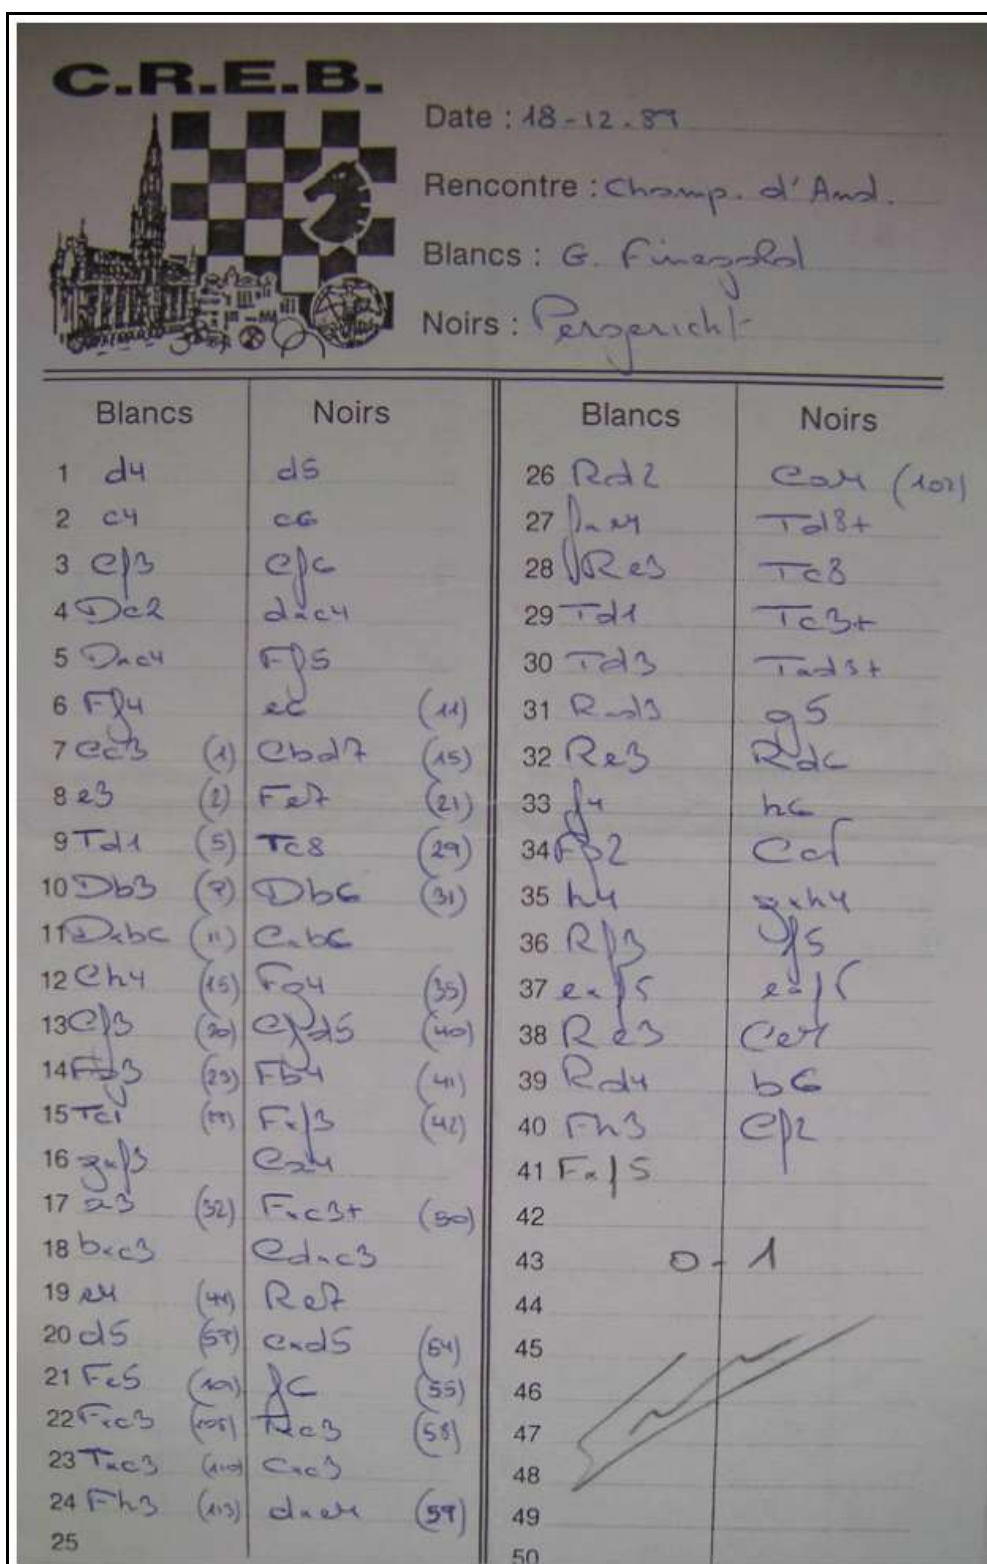 C.R.E.B.
Date : 18-12-89
Rencontre : Champ. d'And.
Blancs : G. Finegold
Noirs : Pergericht
Blancs Noirs Blancs Noirs
1 d4 d5
2 c4 c6
3 Cf3 Cf6
4 Dc2 dxc4
5 Dxc4 Ff5
6 Ff4 e6 (11)
7 Cc3 (1) Cbd7 (15)
8 e3 (2) Fe7 (21)
9 Td1 (5) Tc8 (29)
10 Db3 (7) Db6 (31)
11 Dxb6 (11) Cxb6
12 Ch4 (15) Fg4 (35)
13 Cf3 (20) Cfd5 (40)
14 Fg3 (23) Fb4 (41)
15 Tc1 Fxf3 (42)
16 gxf3 Ca4
17 a3 (32) Fxc3+ (50)
18 bxc3 Cdxc3
19 e4 (44) Re7
20 d5 (57) cxd5 (54)
21 Fe5 (101) f6 (55)
22 Fxc3 (105) Txc3 (58)
23 Txc3 (110) Cxc3
24 Fh3 (113) dxe4 (59)
25
26 Rd2 Ca4 (102)
27 fxe4 Td8+
28 Re3 Tc8
29 Td1 Tc3+
30 Td3 Txd3+
31 Rxd3 g5
32 Re3 Rd6
33 f4 h6
34 Fg2 Cc5
35 h4 gxh4
36 Rf3 f5
37 exf5 exf5
38 Re3 Ce4
39 Rd4 b6
40 Fh3 Cf2
41 Fxf5
42
43 0-1
44
45
46
47
48
49
50